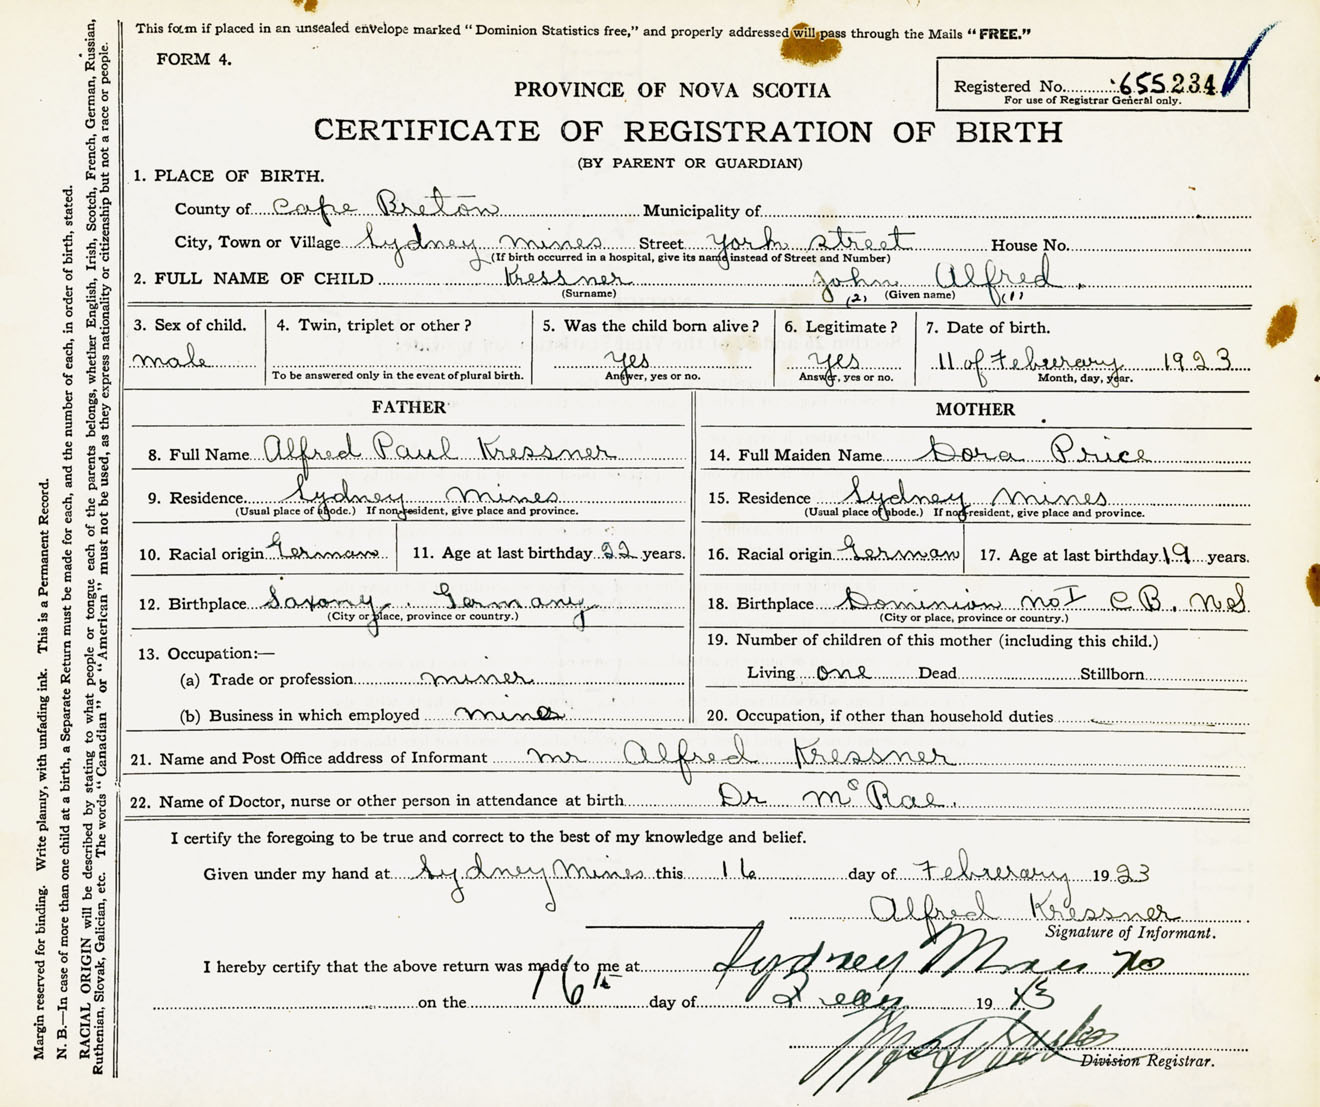 This form if placed in an unsealed envelope marked "Dominion Statistics free," and properly addressed will pass through the Mails "FREE."
FORM 4.
PROVINCE OF NOVA SCOTIA
Registered No. 655234
For use of Registrar General only.
CERTIFICATE OF REGISTRATION OF BIRTH
(BY PARENT OR GUARDIAN)
1. PLACE OF BIRTH.
County of Cape Breton Municipality of
City, Town or Village Sydney mines Street york street House No.
(If birth occurred in a hospital, give its name instead of Street and Number)
2. FULL NAME OF CHILD Kressner John Alfred
(Surname) (2) (Given name) (1)
3. Sex of child. 4. Twin, triplet or other? 5. Was the child born alive? 6. Legitimate? 7. Date of birth.
male yes yes 11 of Feburary 1923
To be answered only in the event of plural birth. Answer, yes or no. Answer, yes or no. Month, day, year.
FATHER MOTHER
8. Full Name Alfred Paul Kressner 14. Full Maiden Name Dora Price
9. Residence Sydney mines 15. Residence Sydney mines
(Usual place of abode.) If non-resident, give place and province. (Usual place of abode.) If non-resident, give place and province.
10. Racial origin German 11. Age at last birthday 22 years. 16. Racial origin German 17. Age at last birthday 19 years.
12. Birthplace Saxony. Germany 18. Birthplace Dominion no I C B. N S
(City or place, province or country.) (City or place, province or country.)
13. Occupation:— 19. Number of children of this mother (including this child.)
(a) Trade or profession miner Living one Dead Stillborn
(b) Business in which employed mines 20. Occupation, if other than household duties
21. Name and Post Office address of Informant mr Alfred Kressner
22. Name of Doctor, nurse or other person in attendance at birth Dr McRae.
I certify the foregoing to be true and correct to the best of my knowledge and belief.
Given under my hand at Sydney Mines this 16 day of Feburary 1923
Alfred Kressner
Signature of Informant.
I hereby certify that the above return was made to me at Sydney Mines
on the 16th day of 19
Division Registrar.
Margin reserved for binding. Write plainly, with unfading ink. This is a Permanent Record.
N. B.—In case of more than one child at a birth, a Separate Return must be made for each, and the number of each, in order of birth, stated.
RACIAL ORIGIN will be described by stating to what people or tongue each of the parents belongs, whether English, Irish, Scotch, French, German, Russian,
Ruthenian, Slovak, Galician, etc. The words "Canadian" or "American" must not be used, as they express nationality or citizenship but not a race or people.